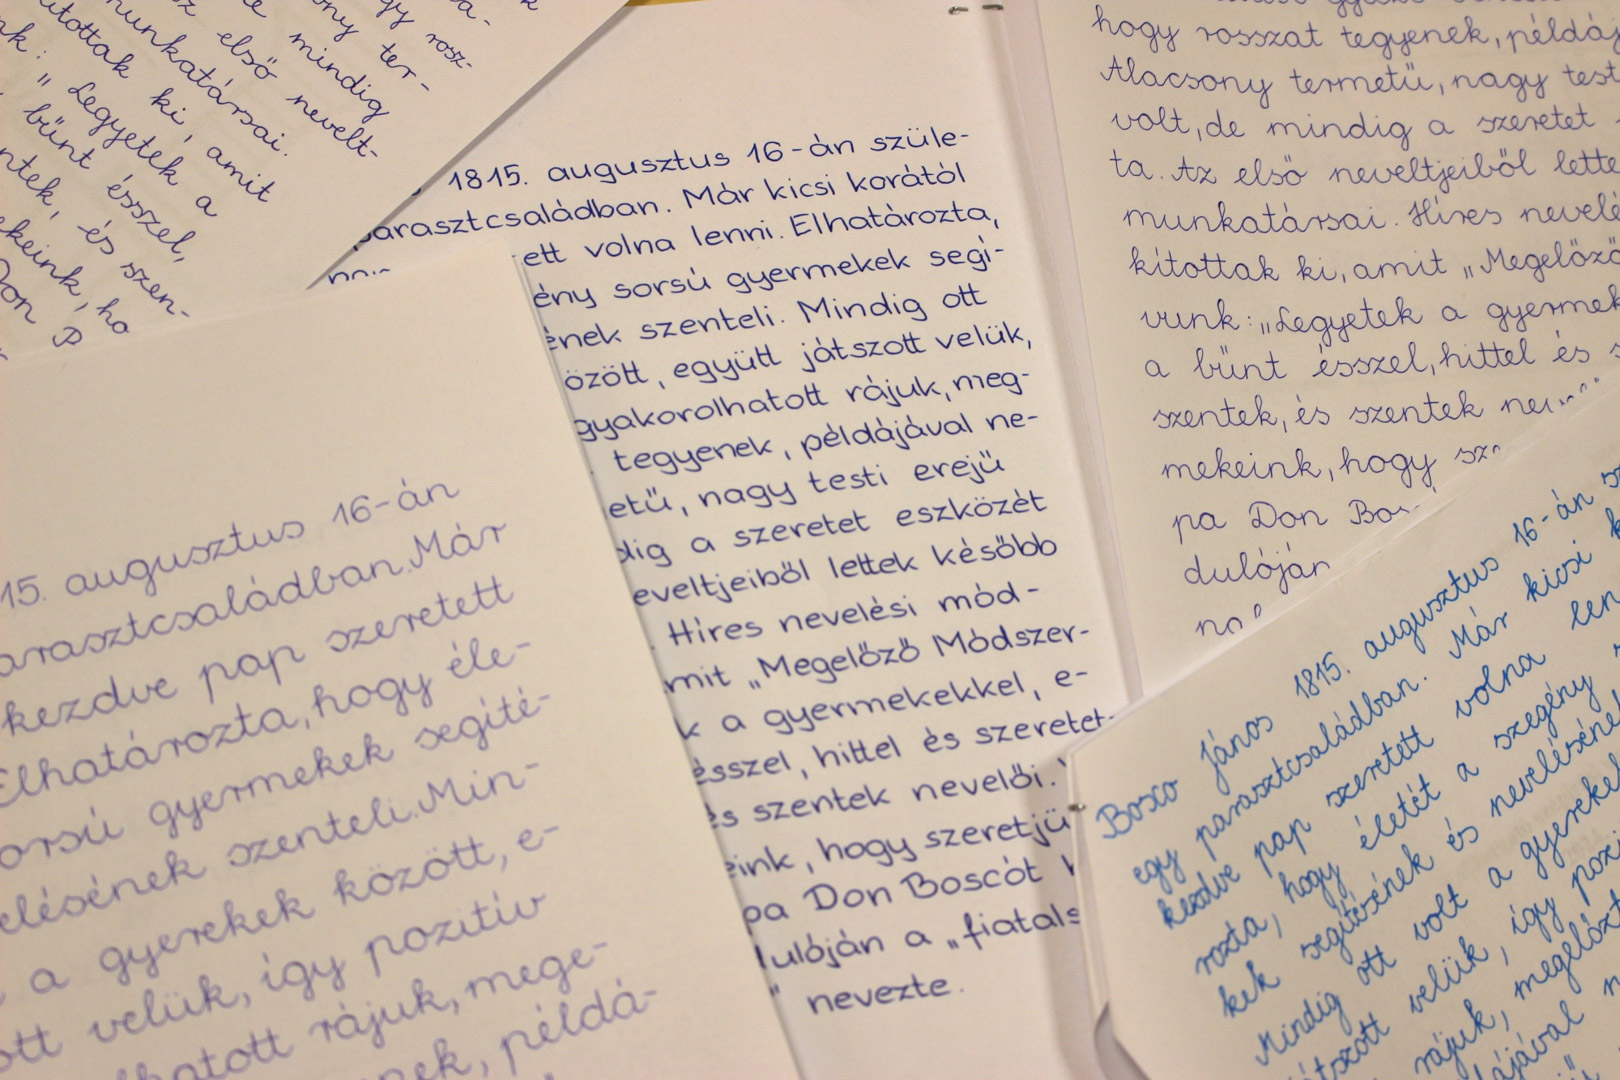 mindig
első nevelt-
munkatársai.
ki, amit
"Legyetek a
bűnt ésszel,
és szen-
ha
1815. augusztus 16-án szüle-
parasztcsaládban. Már kicsi korától
volna lenni. Elhatározta,
sorsú gyermekek segí-
szenteli. Mindig ott
együtt játszott velük,
gyakorolhatott rájuk, meg-
tegyenek, példájával ne-
nagy testi erejű
a szeretet eszközét
lettek később
Híres nevelési mód-
„Megelőző Módszer-
a gyermekekkel, e-
ésszel, hittel és szeretet-
szentek nevelői.
hogy szeretjü
pa Don Boscót
a „fiatals
" nevezte.
hogy rosszat tegyenek, példáj
Alacsony termetű, nagy test
volt, de mindig a szeretet
ta. Az első neveltjeiből lette
munkatársai. Híres nevelé
kítottak ki, amit „Megelőző
vunk: „Legyetek a gyermek
a bűnt ésszel, hittel és
szentek, és szentek
mekeink, hogy
pa Don
dulóján
15. augusztus 16-án
arasztcsaládban. Már
kezdve pap szeretett
Elhatározta, hogy éle-
orsú gyermekek segíté-
elésének szenteli. Min-
a gyerekek között, e-
ott velük, így pozitív
lhatott rájuk, mege-
példá-
Bosco János 1815. augusztus 16-án
egy parasztcsaládban. Már kicsi
kezdve pap szeretett volna len
rozta, hogy életét a szegény
kek segítésének és nevelésének
Mindig ott volt a gyerekek
játszott velük, így pozi
rájuk, megelőzt